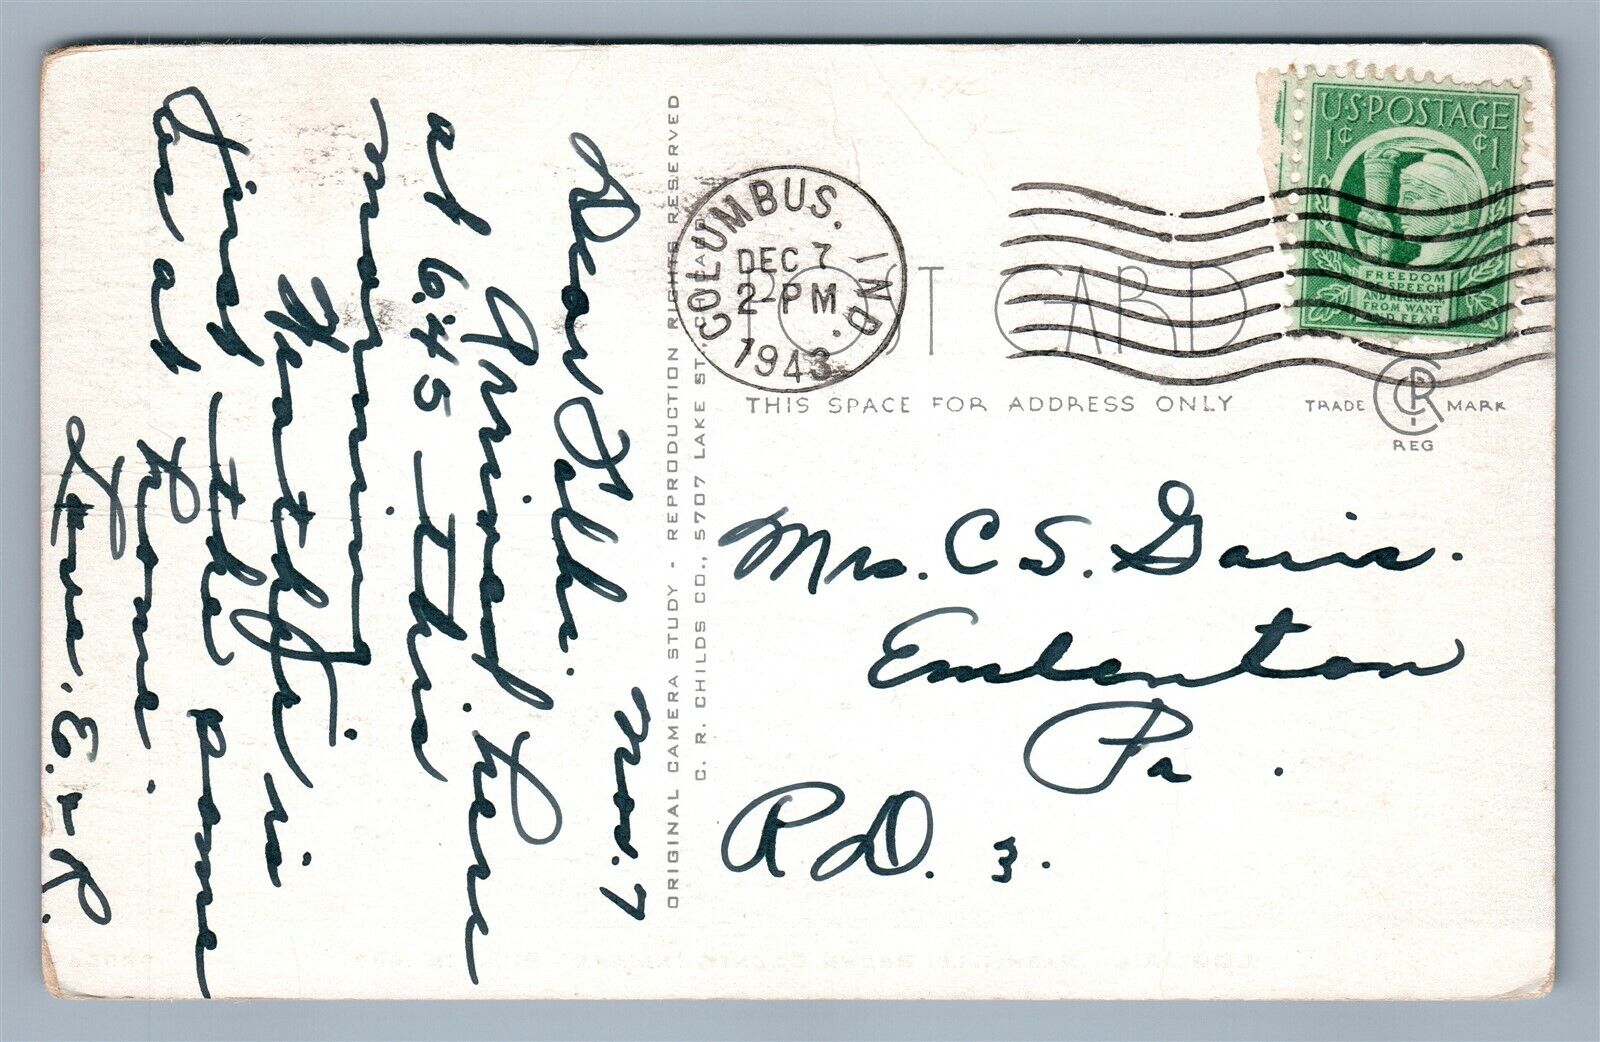 Nov. 7
Dear Folks.
Arrived here
at 6:45 this
morning
Weather is
fine, the same
as at
home.
Love. E. & R.
ORIGINAL CAMERA STUDY - REPRODUCTION RIGHTS RESERVED
C. R. CHILDS CO., 5707 LAKE ST.
COLUMBUS. IND.
DEC 7
2-PM
1943
POST CARD
THIS SPACE FOR ADDRESS ONLY
TRADE CRC MARK
REG
U.S. POSTAGE
1¢ ¢1
FREEDOM
OF SPEECH
AND RELIGION
FROM WANT
AND FEAR
Mrs. C S. Davis.
Emlenton
Pa.
R.D. 3.